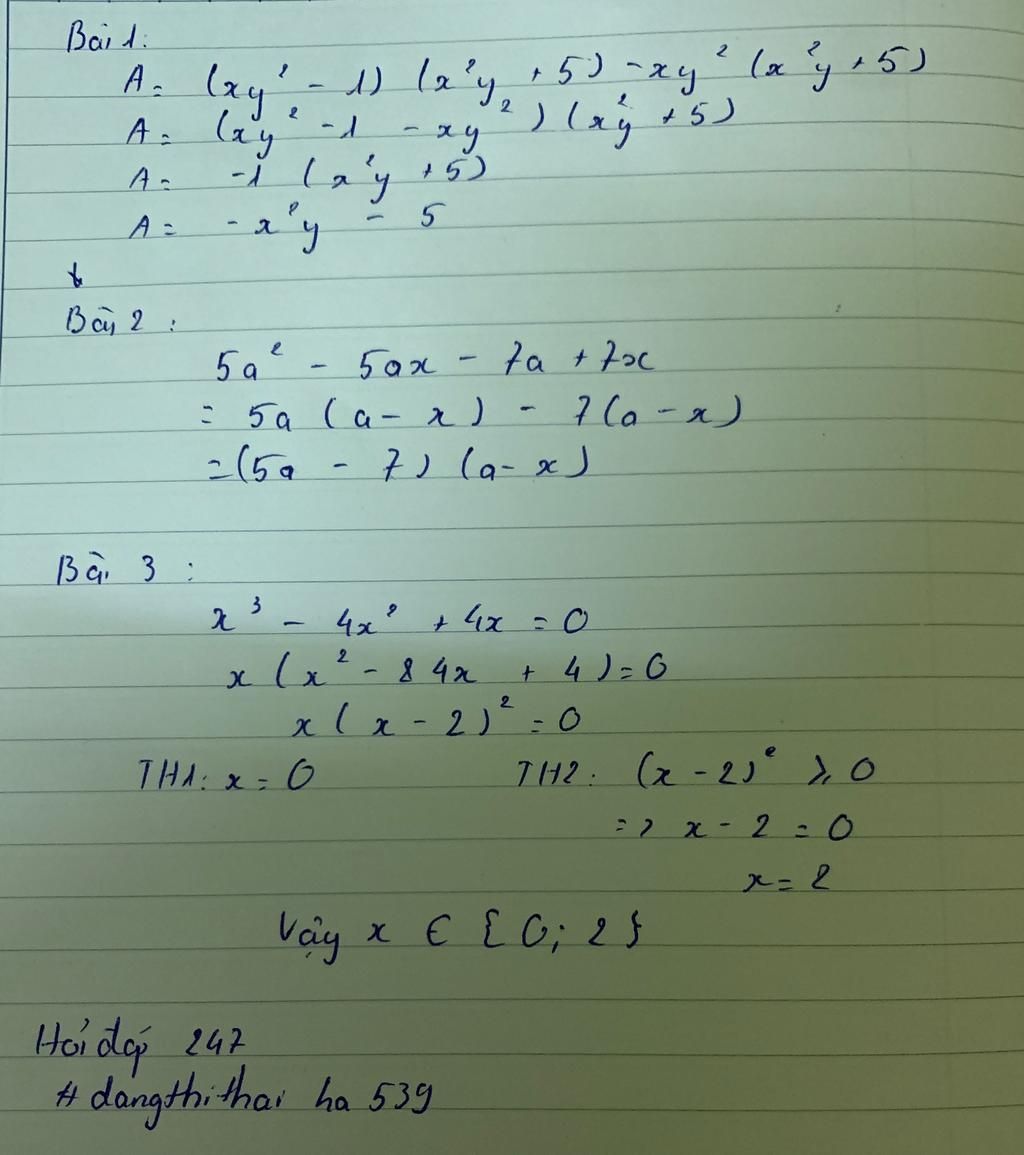 Bài 1:
A = (xy² - 1) (x²y + 5) - xy² (x²y + 5)
A = (xy² - 1 - xy²) (x²y + 5)
A = -1 (x²y + 5)
A = - x²y - 5
Bài 2 :
5a² - 5ax - 7a + 7x
= 5a (a - x) - 7 (a - x)
= (5a - 7) (a - x)
Bài 3 :
x³ - 4x² + 4x = 0
x (x² - 8 4x + 4) = 0
x (x - 2)² = 0
TH1: x = 0 TH2: (x - 2)² ≥ 0
=> x - 2 = 0
x = 2
Vậy x ∈ {0; 2}
Hỏi đáp 247
# dangthithai ha 539